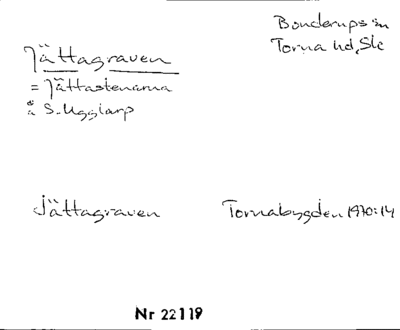 Jättagraven
Bonderups sn
Torna hd, Slc
= Jättastenarna
å S. Uggiarp
Jättagraven
Tornabygden 1970:14
Nr 22119